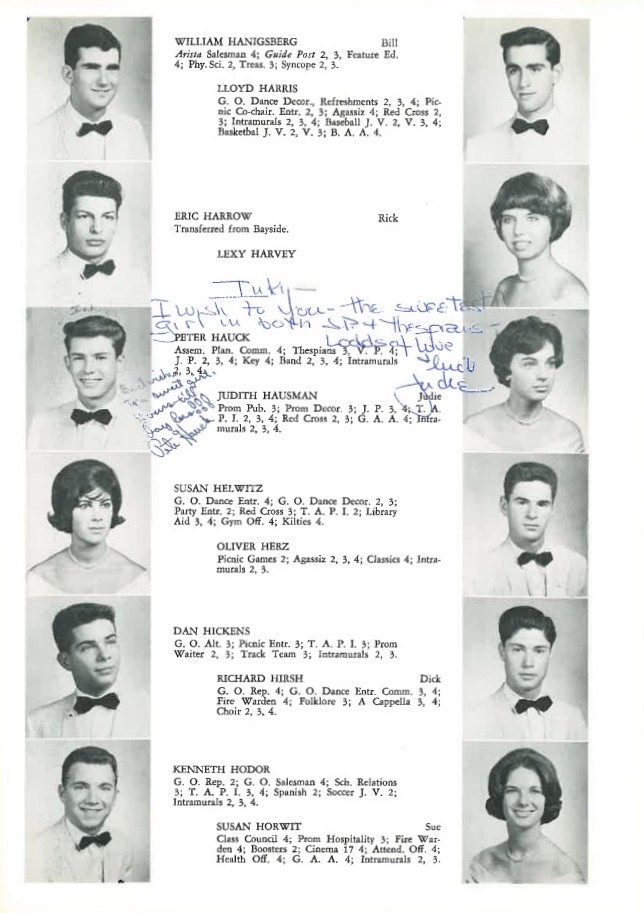 WILLIAM HANIGSBERG Bill
Arista Salesman 4; Guide Post 2, 3, Feature Ed.
4; Phy. Sci. 2, Treas. 3; Syncope 2, 3.
LLOYD HARRIS
G. O. Dance Decor., Refreshments 2, 3, 4; Pic-
nic Co-chair. Entr. 2, 3; Agassiz 4; Red Cross 2,
3; Intramurals 2, 3, 4; Baseball J. V. 2, V. 3, 4;
Basketbal J. V. 2, V. 3; B. A. A. 4.
ERIC HARROW Rick
Transferred from Bayside.
LEXY HARVEY
I wish to you - the sweetest
girl in both JP & Thespians -
Loads of love
& luck
Judie
PETER HAUCK
Assem. Plan. Comm. 4; Thespians 3, V. P. 4;
J. P. 2, 3, 4; Key 4; Band 2, 3, 4; Intramurals
2, 3, 4.
Best wishes
To a sweet girl.
Pete Hauck
JUDITH HAUSMAN Judie
Prom Pub. 3; Prom Decor. 3; J. P. 3, 4; T. A.
P. I. 2, 3, 4; Red Cross 2, 3; G. A. A. 4; Intra-
murals 2, 3, 4.
SUSAN HELWITZ
G. O. Dance Entr. 4; G. O. Dance Decor. 2, 3;
Party Entr. 2; Red Cross 3; T. A. P. I. 2; Library
Aid 3, 4; Gym Off. 4; Kilties 4.
OLIVER HERZ
Picnic Games 2; Agassiz 2, 3, 4; Classics 4; Intra-
murals 2, 3.
DAN HICKENS
G. O. Alt. 3; Picnic Entr. 3; T. A. P. I. 3; Prom
Waiter 2, 3; Track Team 3; Intramurals 2, 3.
RICHARD HIRSH Dick
G. O. Rep. 4; G. O. Dance Entr. Comm. 3, 4;
Fire Warden 4; Folklore 3; A Cappella 3, 4;
Choir 2, 3, 4.
KENNETH HODOR
G. O. Rep. 2; G. O. Salesman 4; Sch. Relations
3; T. A. P. I. 3, 4; Spanish 2; Soccer J. V. 2;
Intramurals 2, 3, 4.
SUSAN HORWIT Sue
Class Council 4; Prom Hospitality 3; Fire War-
den 4; Boosters 2; Cinema 17 4; Attend. Off. 4;
Health Off. 4; G. A. A. 4; Intramurals 2, 3.